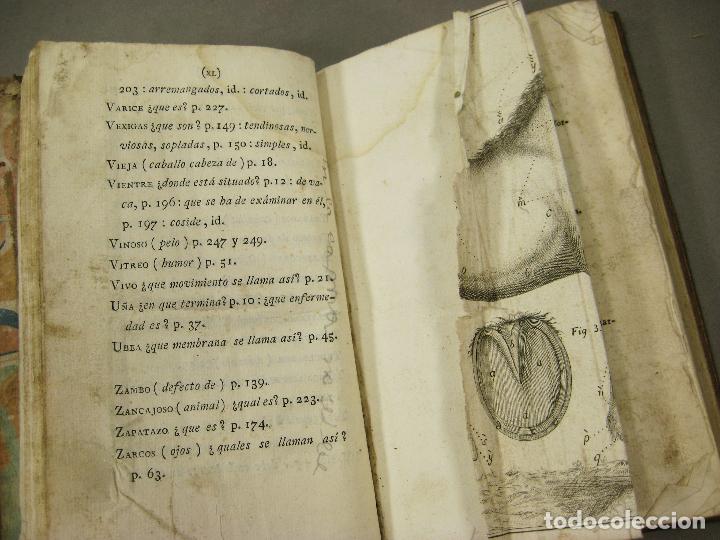 (XL)
203 : arremangados, id. : cortados, id.
VARICE ¿que es? p. 227.
VEXIGAS ¿que son? p. 149 : tendinosas, ner-
viosas, sopladas, p. 150 : simples, id.
VIEJA (caballo cabeza de) p. 18.
VIENTRE ¿donde está situado? p. 12 : de va-
ca, p. 196: que se ha de exáminar en él,
p. 197 : coside, id.
VINOSO (pelo) p. 247 y 249.
VITREO (humor) p. 51.
VIVO ¿que movimiento se llama así? p. 21.
UÑA ¿en que termina? p. 10 : ¿que enferme-
dad es? p. 37.
UBEA ¿que membrana se llama así? p. 45.
ZAMBO (defecto de) p. 139.
ZANCAJOSO (animal) ¿qual es? p. 223.
ZAPATAZO ¿que es? p. 174.
ZARCOS (ojos) ¿quales se llaman así?
p. 63.
Fig 3
todocoleccion.net